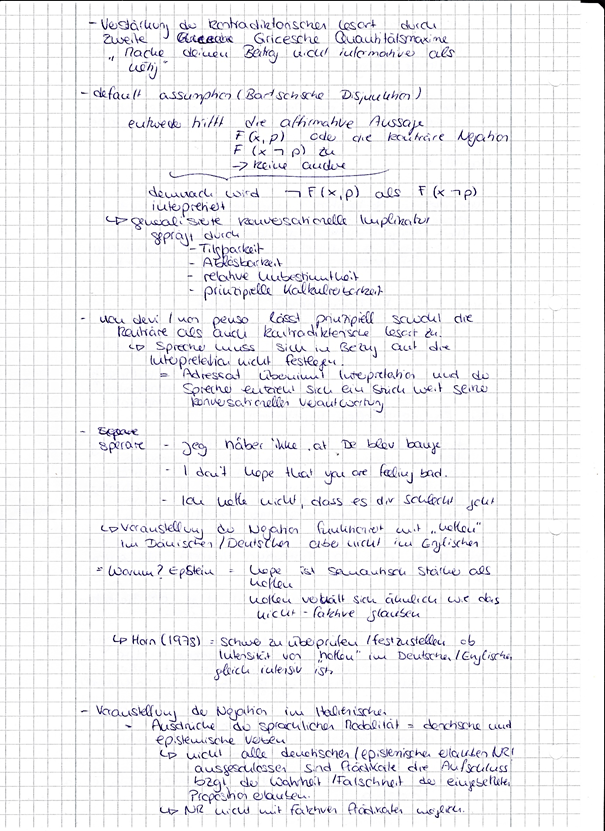 - Verstärkung der kontradiktorischen Lesart durch
zweite Gricesche Quantitätsmaxime
"Mache deinen Beitrag nicht informativer als
nötig"
- default assumption (Bartschsche Disjunktion)
entweder trifft die affirmative Aussage
F(x,p) oder die konträre Negation
F(x¬p) zu
→ keine andre
demnach wird ¬F(x,p) als F(x¬p)
interpretiert
↳ generalisierte konversationelle Implikatur
geprägt durch
- Tilgbarkeit
- Ablösbarkeit
- relative Unbestimmtheit
- prinzipielle Kalkulierbarkeit
- non devi / non penso lässt prinzipiell sowohl die
konträre als auch kontradiktorische Lesart zu.
↳ Sprecher muss sich in Bezug auf die
Interpretation nicht festlegen.
= Adressat übernimmt Interpretation und der
Sprecher entzieht sich ein Stück weit seiner
konversationellen Verantwortung
-
sperare - Jeg håber ikke, at De blev bange
- I don't hope that you are feeling bad.
- Ich hoffe nicht, dass es dir schlecht geht
↳ Voranstellung der Negation funktioniert mit "hoffen"
im Dänischen / Deutschen aber nicht im Englischen
= Warum? Epstein = hope ist semantisch stärker als
hoffen
hoffen verhält sich ähnlich wie das
nicht-faktive glauben
↳ Horn (1978) = schwer zu überprüfen / festzustellen ob
Intensität von "hoffen" im Deutschen / Englischen
gleich intensiv ist
- Voranstellung der Negation im Italienischen
- Ausdrücke der sprachlichen Modalität = deontische und
epistemische Verben
↳ nicht alle deontischen / epistemischen erlauben NR!
ausgeschlossen sind Prädikate die Aufschluss
bzgl. der Wahrheit / Falschheit der eingebetteten
Proposition erlauben.
↳ NR nicht mit faktiven Prädikaten möglich.